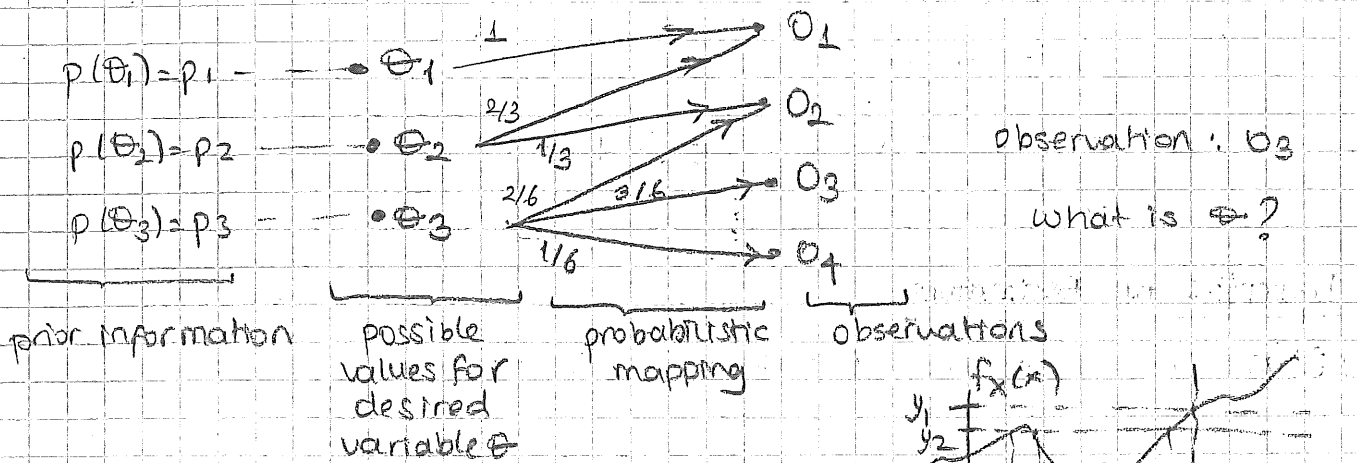 p(θ₁)=p₁ θ₁ 1 O₁
p(θ₂)=p₂ θ₂ 2/3 1/3 O₂
p(θ₃)=p₃ θ₃ 2/6 3/6 1/6 O₃
O₄
observation : O₃
what is θ?
prior information
possible values for desired variable θ
probabilistic mapping
observations
fₓ(x)
y₁
y₂